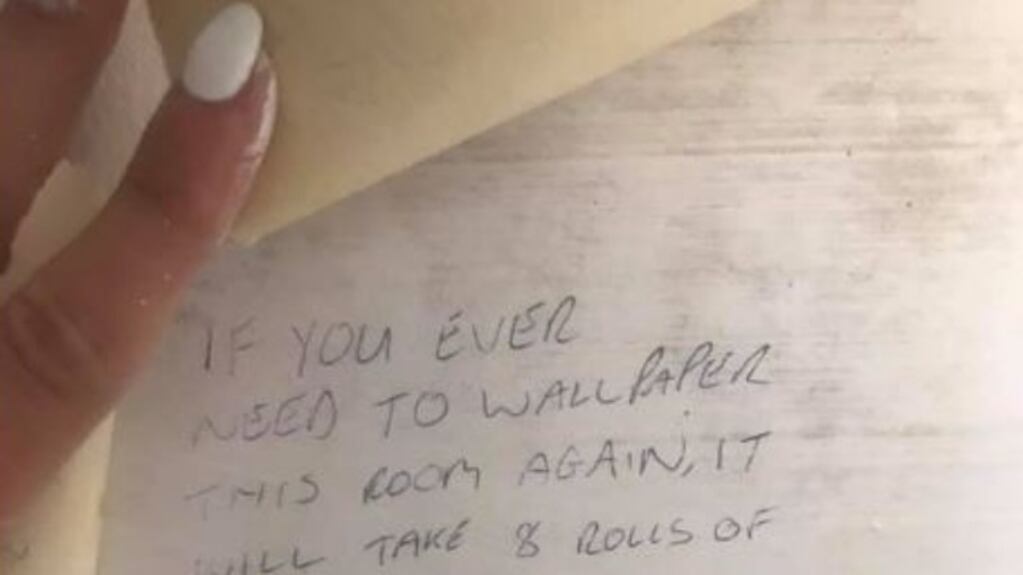 IF YOU EVER
NEED TO WALLPAPER
THIS ROOM AGAIN, IT
WILL TAKE 8 ROLLS OF